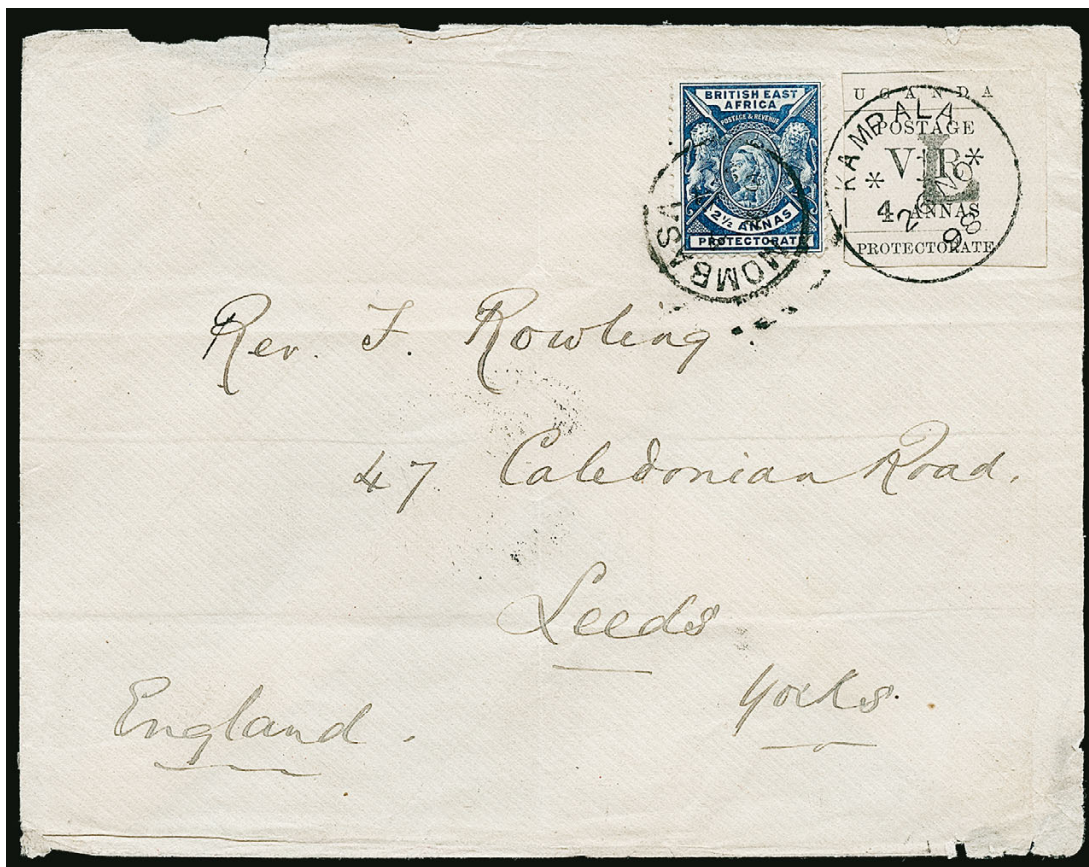 BRITISH EAST
AFRICA
POSTAGE & REVENUE
2½ ANNAS
PROTECTORATE
MOMBASA
UGANDA
POSTAGE
V R
L
4 ANNAS
PROTECTORATE
KAMPALA
98
Rev. F. Rowling
47 Caledonian Road.
Leeds
Yorks.
England.